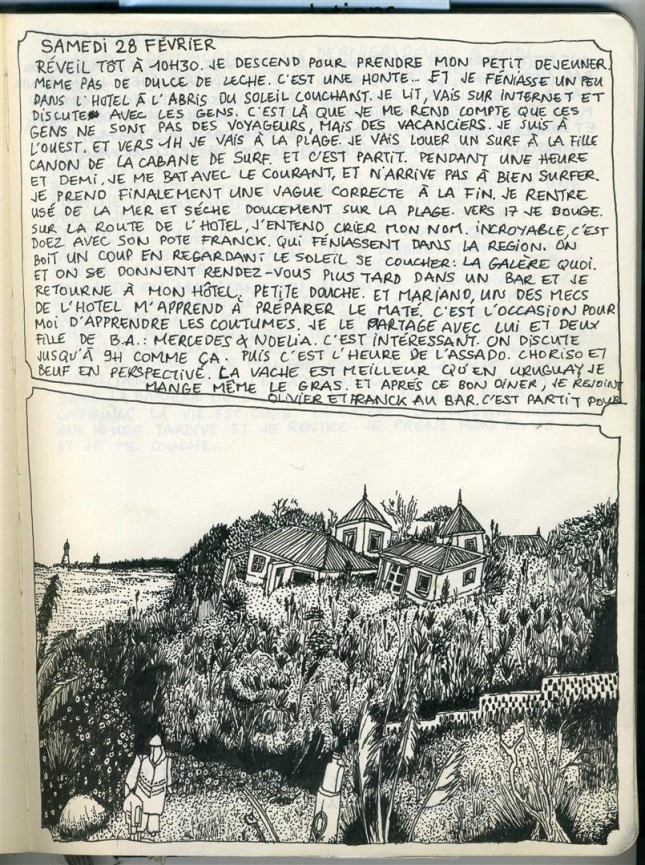 SAMEDI 28 FÉVRIER
RÉVEIL TÔT À 10H30. JE DESCEND POUR PRENDRE MON PETIT DEJEUNER.
MEME PAS DE DULCE DE LECHE. C'EST UNE HONTE... ET JE FÉNIASSE UN PEU
DANS L'HOTEL À L'ABRIS DU SOLEIL COUCHANT. JE LIT, VAIS SUR INTERNET ET
DISCUTE AVEC LES GENS. C'EST LÀ QUE JE ME REND COMPTE QUE CES
GENS NE SONT PAS DES VOYAGEURS, MAIS DES VACANCIERS. JE SUIS À
L'OUEST. ET VERS 1H JE VAIS À LA PLAGE. JE VAIS LOUER UN SURF À LA FILLE
CANON DE LA CABANE DE SURF. ET C'EST PARTIT. PENDANT UNE HEURE
ET DEMI, JE ME BAT AVEC LE COURANT, ET N'ARRIVE PAS À BIEN SURFER.
JE PREND FINALEMENT UNE VAGUE CORRECTE À LA FIN. JE RENTRE
USÉ DE LA MER ET SÉCHE DOUCEMENT SUR LA PLAGE. VERS 17 JE BOUGE.
SUR LA ROUTE DE L'HOTEL, J'ENTEND CRIER MON NOM. INCROYABLE, C'EST
DOEZ AVEC SON POTE FRANCK. QUI FÉNIASSENT DANS LA REGION. ON
BOIT UN COUP EN REGARDANT LE SOLEIL SE COUCHER: LA GALÈRE QUOI.
ET ON SE DONNENT RENDEZ-VOUS PLUS TARD DANS UN BAR ET JE
RETOURNE À MON HÔTEL. PETITE DOUCHE. ET MARIANO, UN DES MECS
DE L'HOTEL M'APPREND À PRÉPARER LE MATE. C'EST L'OCCASION POUR
MOI D'APPRENDRE LES COUTUMES. JE LE PARTAGE AVEC LUI ET DEUX
FILLE DE B.A.: MERCEDES & NOELIA. C'EST INTÉRESSANT. ON DISCUTE
JUSQU'À 9H COMME ÇA. PUIS C'EST L'HEURE DE L'ASSADO. CHORISO ET
BEUF EN PERSPECTIVE. LA VACHE EST MEILLEUR QU'EN URUGUAY. JE
MANGE MÊME LE GRAS. ET APRÉS CE BON DINER, JE REJOINT
OLIVIER ET FRANCK AU BAR. C'EST PARTIT POUR